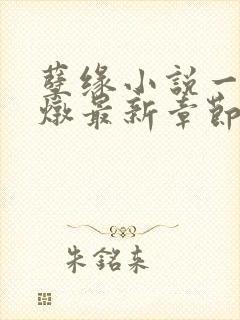 孽缘小説一
燉最新章節
朱銘来